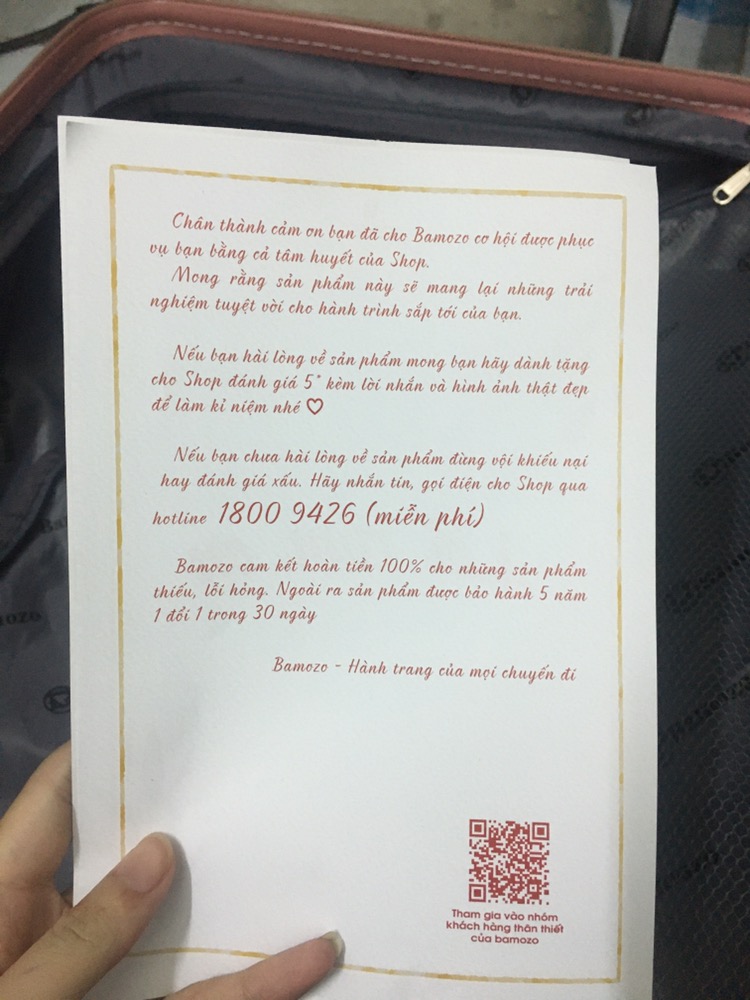 Chân thành cảm ơn bạn đã cho Bamozo cơ hội được phục
vụ bạn bằng cả tâm huyết của Shop.
Mong rằng sản phẩm này sẽ mang lại những trải
nghiệm tuyệt vời cho hành trình sắp tới của bạn.
Nếu bạn hài lòng về sản phẩm mong bạn hãy dành tặng
cho Shop đánh giá 5* kèm lời nhắn và hình ảnh thật đẹp
để làm kỉ niệm nhé ♡
Nếu bạn chưa hài lòng về sản phẩm đừng vội khiếu nại
hay đánh giá xấu. Hãy nhắn tin, gọi điện cho Shop qua
hotline 1800 9426 (miễn phí)
Bamozo cam kết hoàn tiền 100% cho những sản phẩm
thiếu, lỗi hỏng. Ngoài ra sản phẩm được bảo hành 5 năm
1 đổi 1 trong 30 ngày
Bamozo - Hành trang của mọi chuyến đi
Tham gia vào nhóm
khách hàng thân thiết
của bamozo